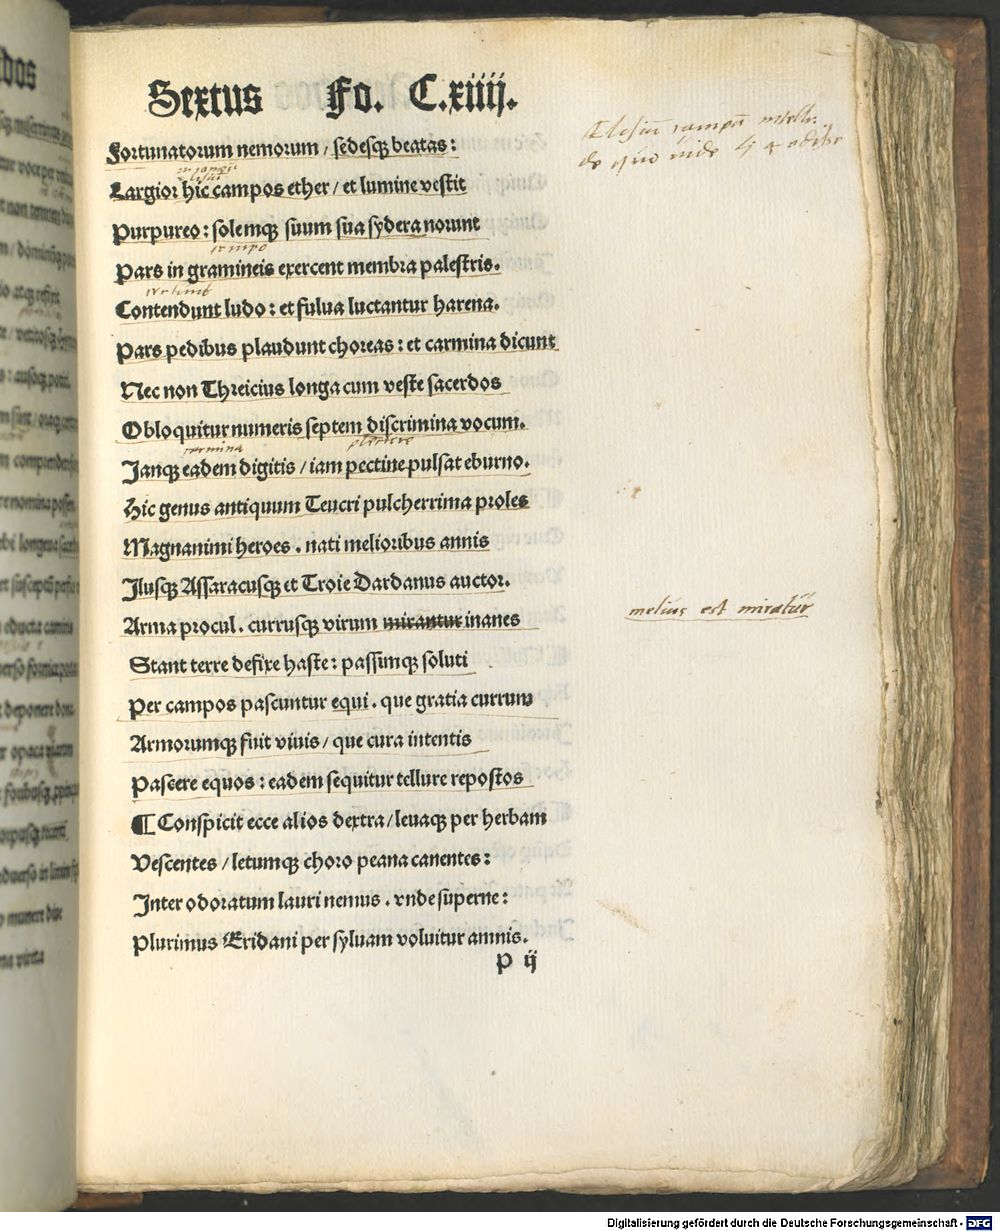 Sextus Fo. C.xiiij.
Fortunatorum nemorum / sedesqꝫ beatas:
Largior hic campos ether / et lumine vestit
Purpureo: solemqꝫ suum sua sydera norunt
campo
Pars in gramineis exercent membra palestris.
Contendunt ludo: et fulua luctantur harena.
Pars pedibus plaudunt choreas: et carmina dicunt
Nec non Threicius longa cum veste sacerdos
Obloquitur numeris septem discrimina vocum.
carmina plectere
Janqꝫ eadem digitis / iam pectine pulsat eburno.
Hic genus antiquum Teucri pulcherrima proles
Magnanimi heroes . nati melioribus annis
Jlusqꝫ Assaracusqꝫ et Troie Dardanus auctor.
Arma procul . currusqꝫ virum mirantur inanes
melius est miratur
Stant terre defixe haste: passimqꝫ soluti
Per campos pascuntur equi . que gratia currum
Armorumqꝫ fuit viuis / que cura intentis
Pascere equos: eadem sequitur tellure repostos
¶ Conspicit ecce alios dextra / leuaqꝫ per herbam
Vescentes / letumqꝫ choro peana canentes:
Inter odoratum lauri nemus . vnde superne:
Plurimus Eridani per syluam voluitur amnis.
P ij
Digitalisierung gefördert durch die Deutsche Forschungsgemeinschaft - DFG